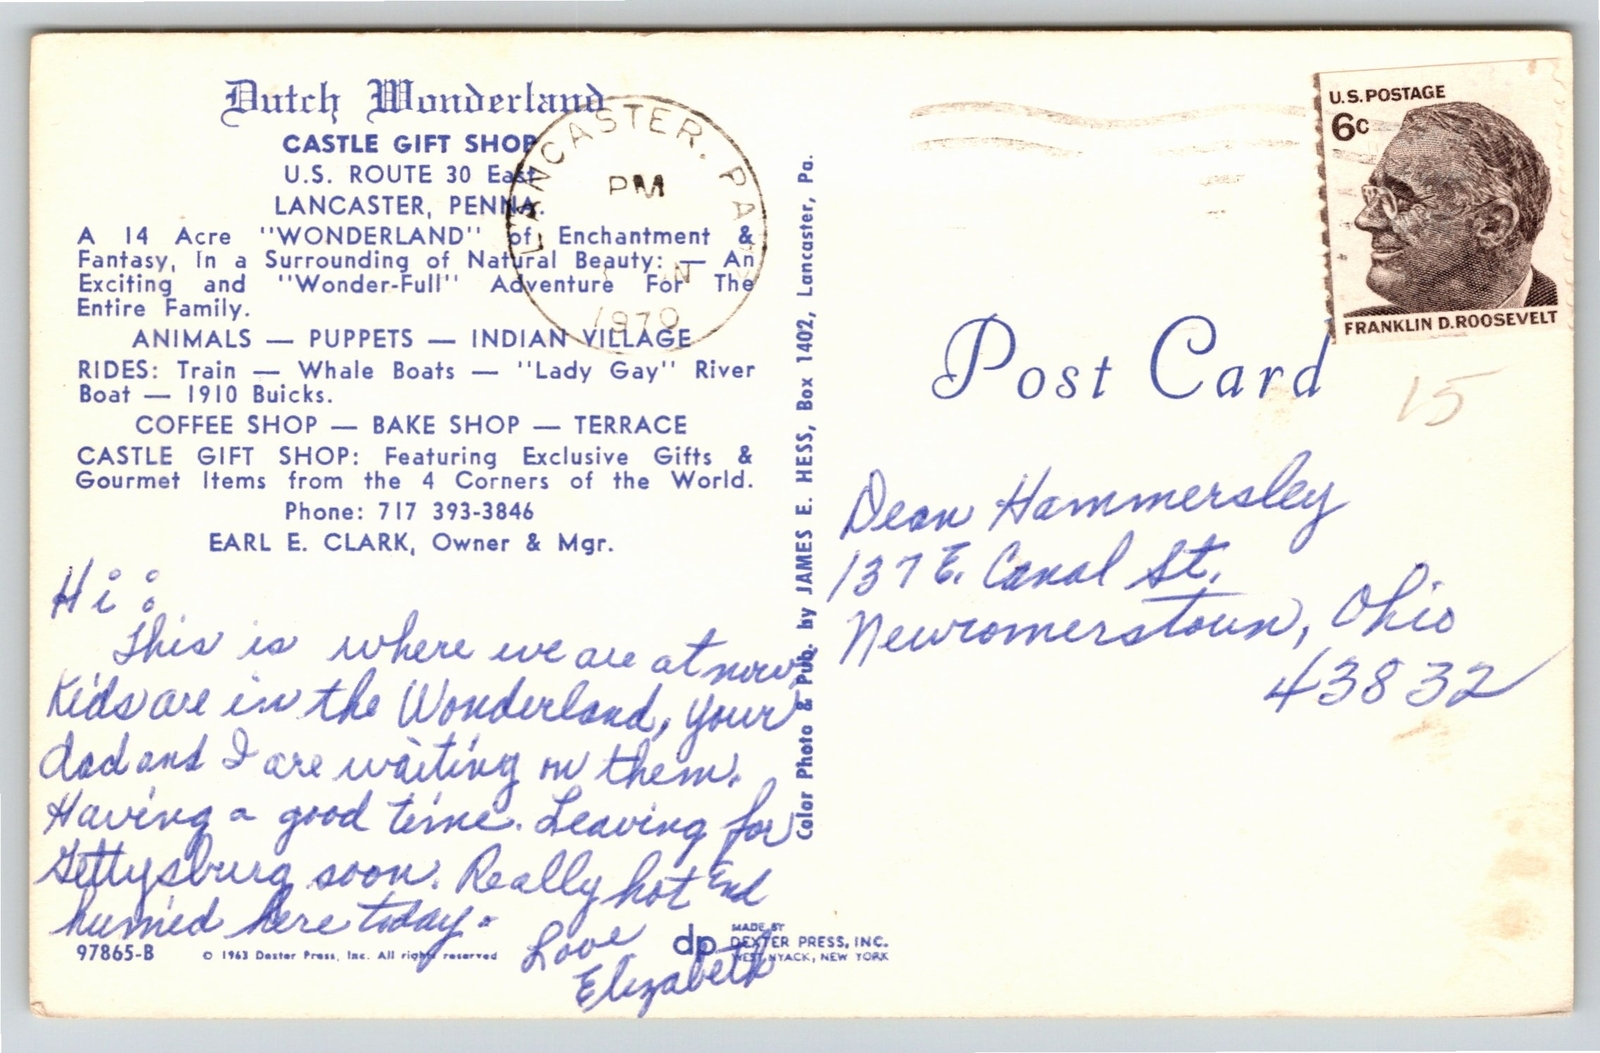 Dutch Wonderland
CASTLE GIFT SHOP
U.S. ROUTE 30 East
LANCASTER, PENNA.
A 14 Acre "WONDERLAND" of Enchantment &
Fantasy, In a Surrounding of Natural Beauty: — An
Exciting and "Wonder-Full" Adventure For The
Entire Family.
ANIMALS — PUPPETS — INDIAN VILLAGE
RIDES: Train — Whale Boats — "Lady Gay" River
Boat — 1910 Buicks.
COFFEE SHOP — BAKE SHOP — TERRACE
CASTLE GIFT SHOP: Featuring Exclusive Gifts &
Gourmet Items from the 4 Corners of the World.
Phone: 717 393-3846
EARL E. CLARK, Owner & Mgr.
Hi:
This is where we are at now.
Kids are in the Wonderland, your
dad and I are waiting on them.
Having a good time. Leaving for
Gettysburg soon. Really hot and
humid here today.
Love
Elizabeth
97865-B
© 1963 Dexter Press, Inc. All rights reserved
dp
MADE BY
DEXTER PRESS, INC.
WEST NYACK, NEW YORK
LANCASTER, PA
PM
1970
Color Photo & Pub. by JAMES E. HESS, Box 1402, Lancaster, Pa.
U.S. POSTAGE
6c
FRANKLIN D. ROOSEVELT
Post Card
15
Dean Hammersley
137 E. Canal St.
Newcomerstown, Ohio
43832